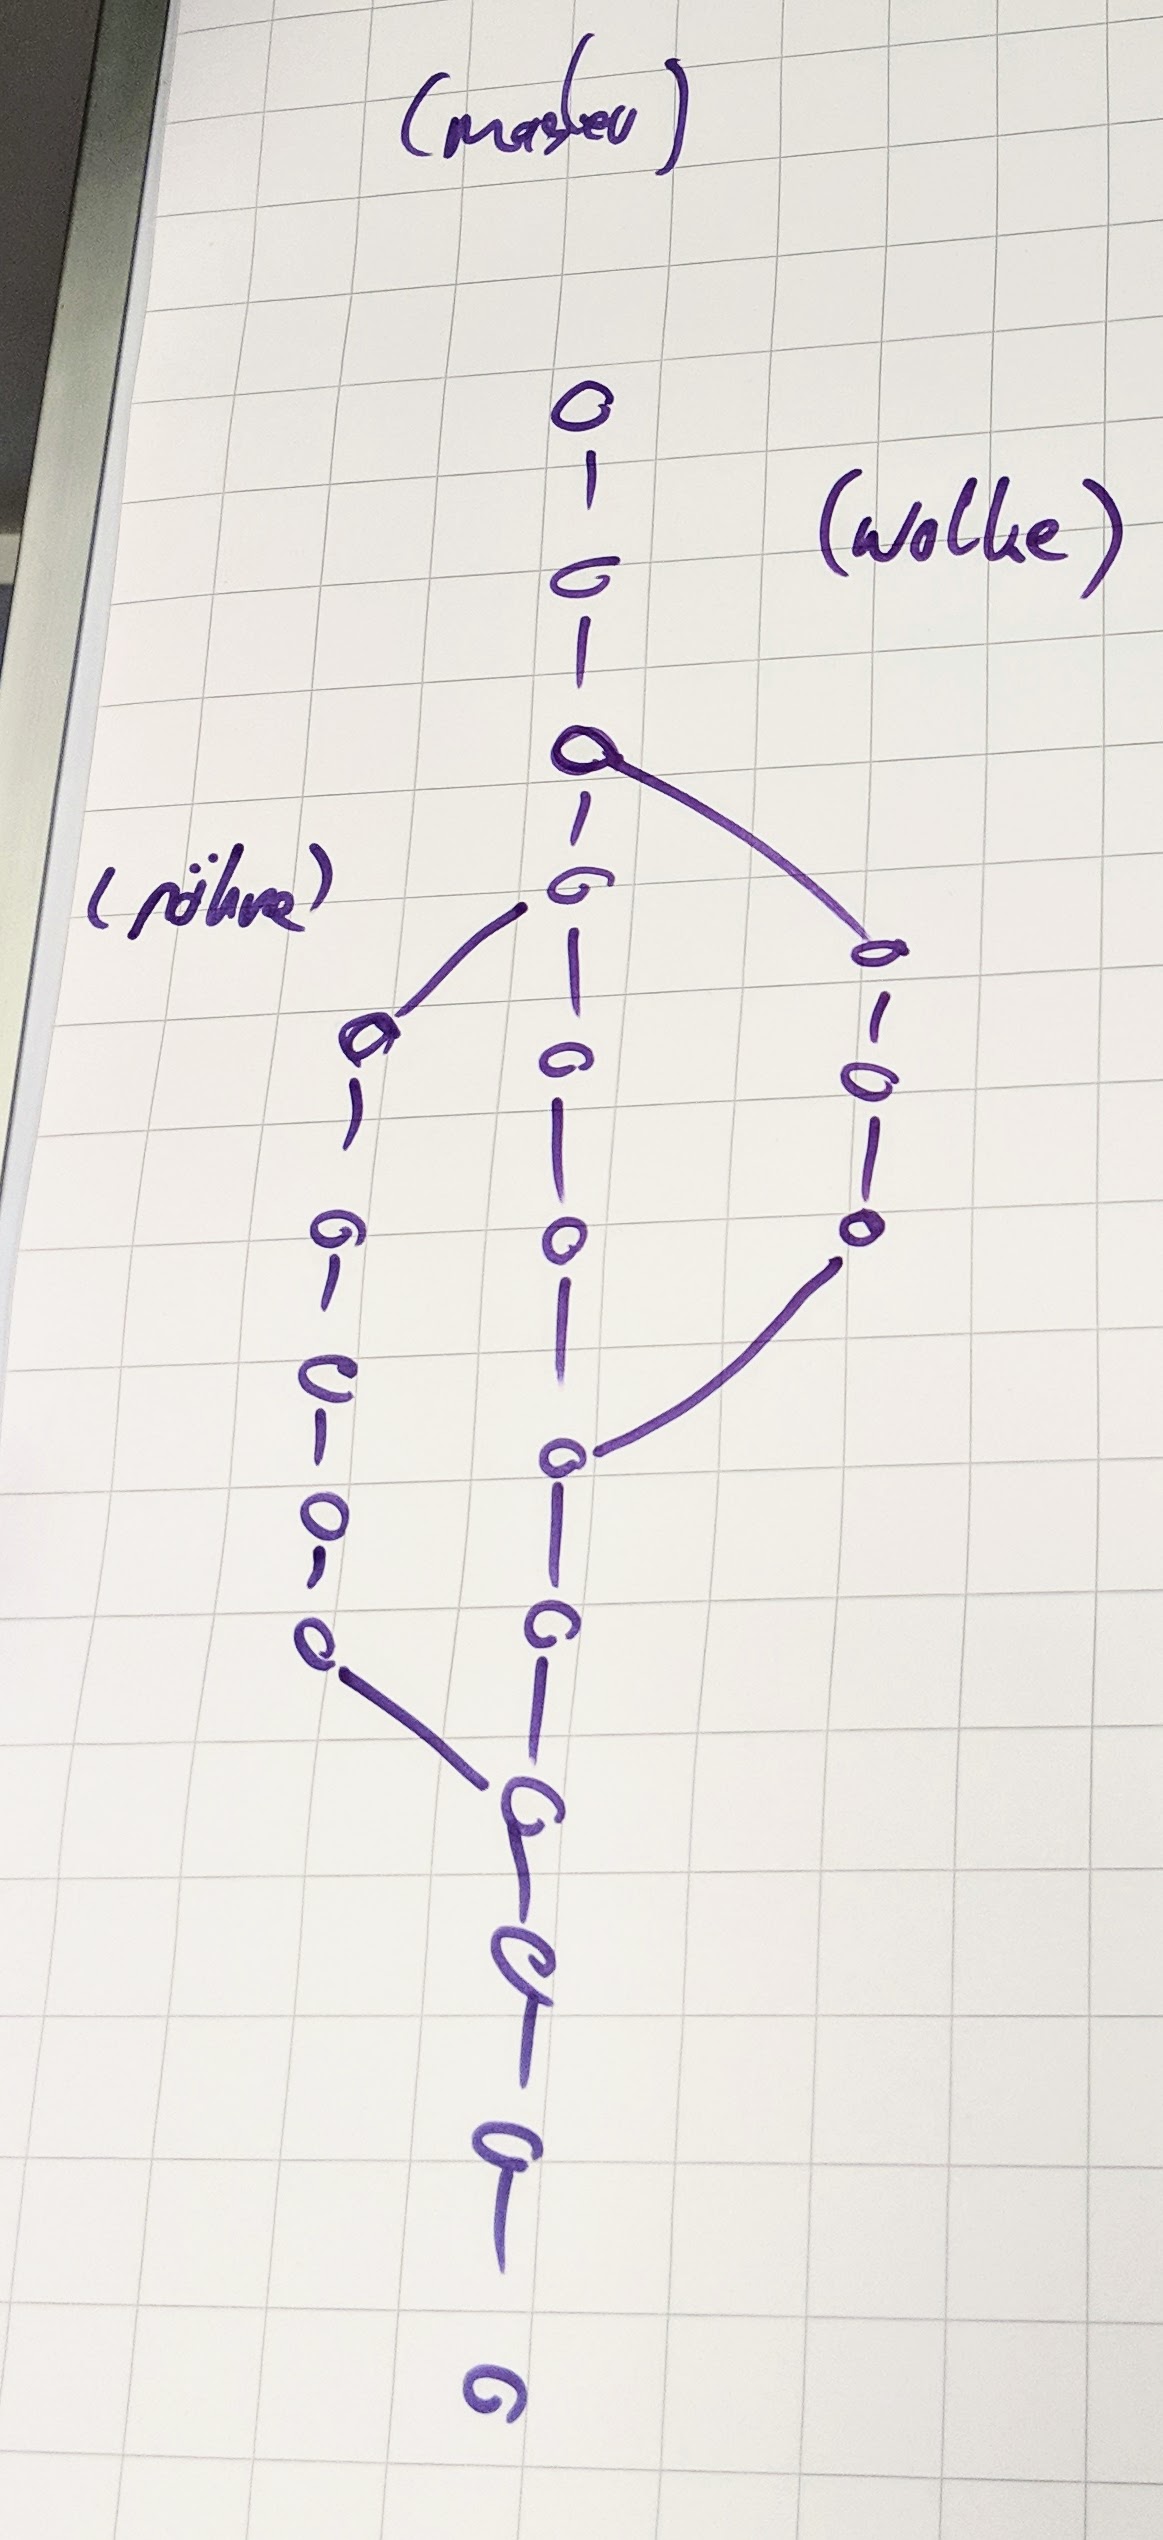 (master)
(wolke)
(röhre)